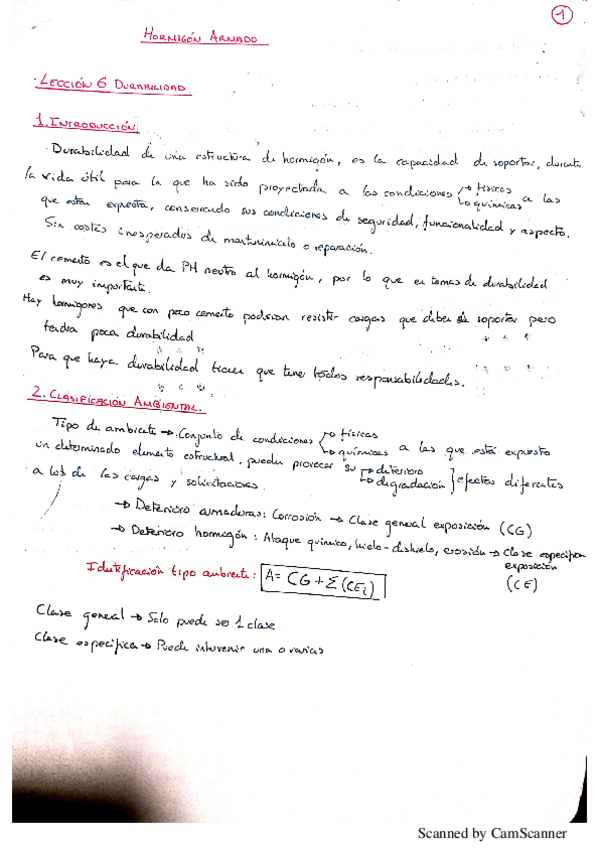 1
HORMIGÓN ARMADO
· LECCIÓN 6 DURABILIDAD
1. INTRODUCCIÓN
· Durabilidad de una estructura de hormigón, es la capacidad de soportar, durante
la vida útil para la que ha sido proyectada a las condiciones → físicas → químicas a las
que están expuesta, conservando sus condiciones de seguridad, funcionalidad y aspecto.
Sin costes inesperados de mantenimiento o reparación.
El cemento es el que da PH neutro al hormigón, por lo que en temas de durabilidad
es muy importante.
Hay hormigones que con poco cemento podrían resistir cargas que deben de soportar pero
tendrá poca durabilidad
Para que haya durabilidad tienen que tener todos responsabilidades.
2. CLASIFICACIÓN AMBIENTAL.
Tipo de ambiente → Conjunto de condiciones → físicas → químicas a las que está expuesto
un determinado elemento estructural, pueden provocar su → deterioro → degradación } efectos diferentes
a los de las cargas y solicitaciones.
→ Deterioro armaduras: Corrosión → Clase general exposición (CG)
→ Deterioro hormigón: Ataque químico, hielo-deshielo, erosión → Clase especifica
exposición
(CE)
Identificación tipo ambiente: A = CG + Σ (CEi)
Clase general → Solo puede ser 1 clase
Clase especifica → Puede intervenir una o varias
Scanned by CamScanner